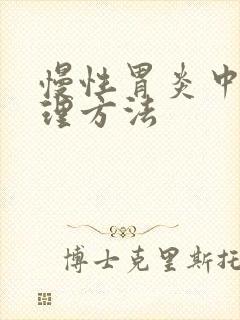 慢性胃炎中
理方法
博士克里斯托